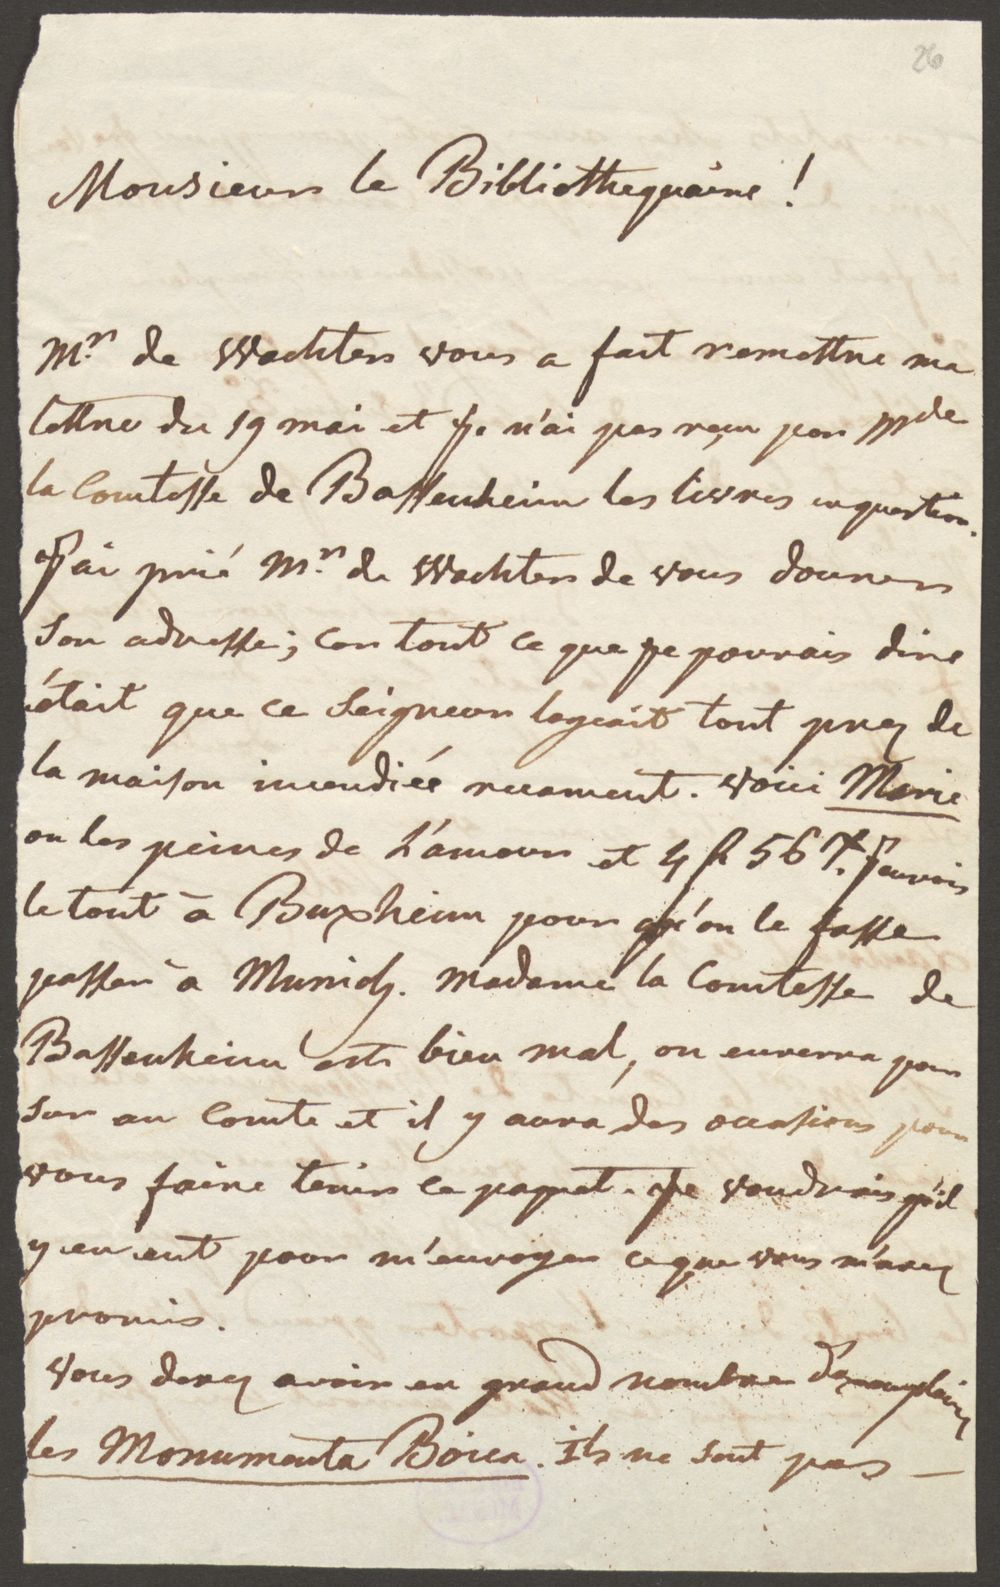 26
Monsieur le Bibliothequaire !
Mr. de Wachter vous a fait remettre ma
lettre du 19 mai et je n'ai pas reçu par Mde
la Comtesse de Bassenheim les livres en question.
J'ai prié Mr. de Wachter de vous donner
son adresse; car tout ce que je pouvais dire
était que ce Seigneur logeait tout prez de
la maison incendiée recament. Voici Marie
ou les peines de L'amour et 4 fl 56 J'envois
le tout à Buxheim pour qu'on le fasse
passer à Munich. Madame la Comtesse de
Bassenheim est bien mal, on enverra pour
sur au Comte et il y aura des occasions pour
vous faire tenir ce paquet. Je voudrais qu'il
y en eut pour m'envoyer ce que vous m'avez
promis.
Vous devez avoir en grand nombre d'exemplaires
les Monumenta Boica. Ils ne sont pas —